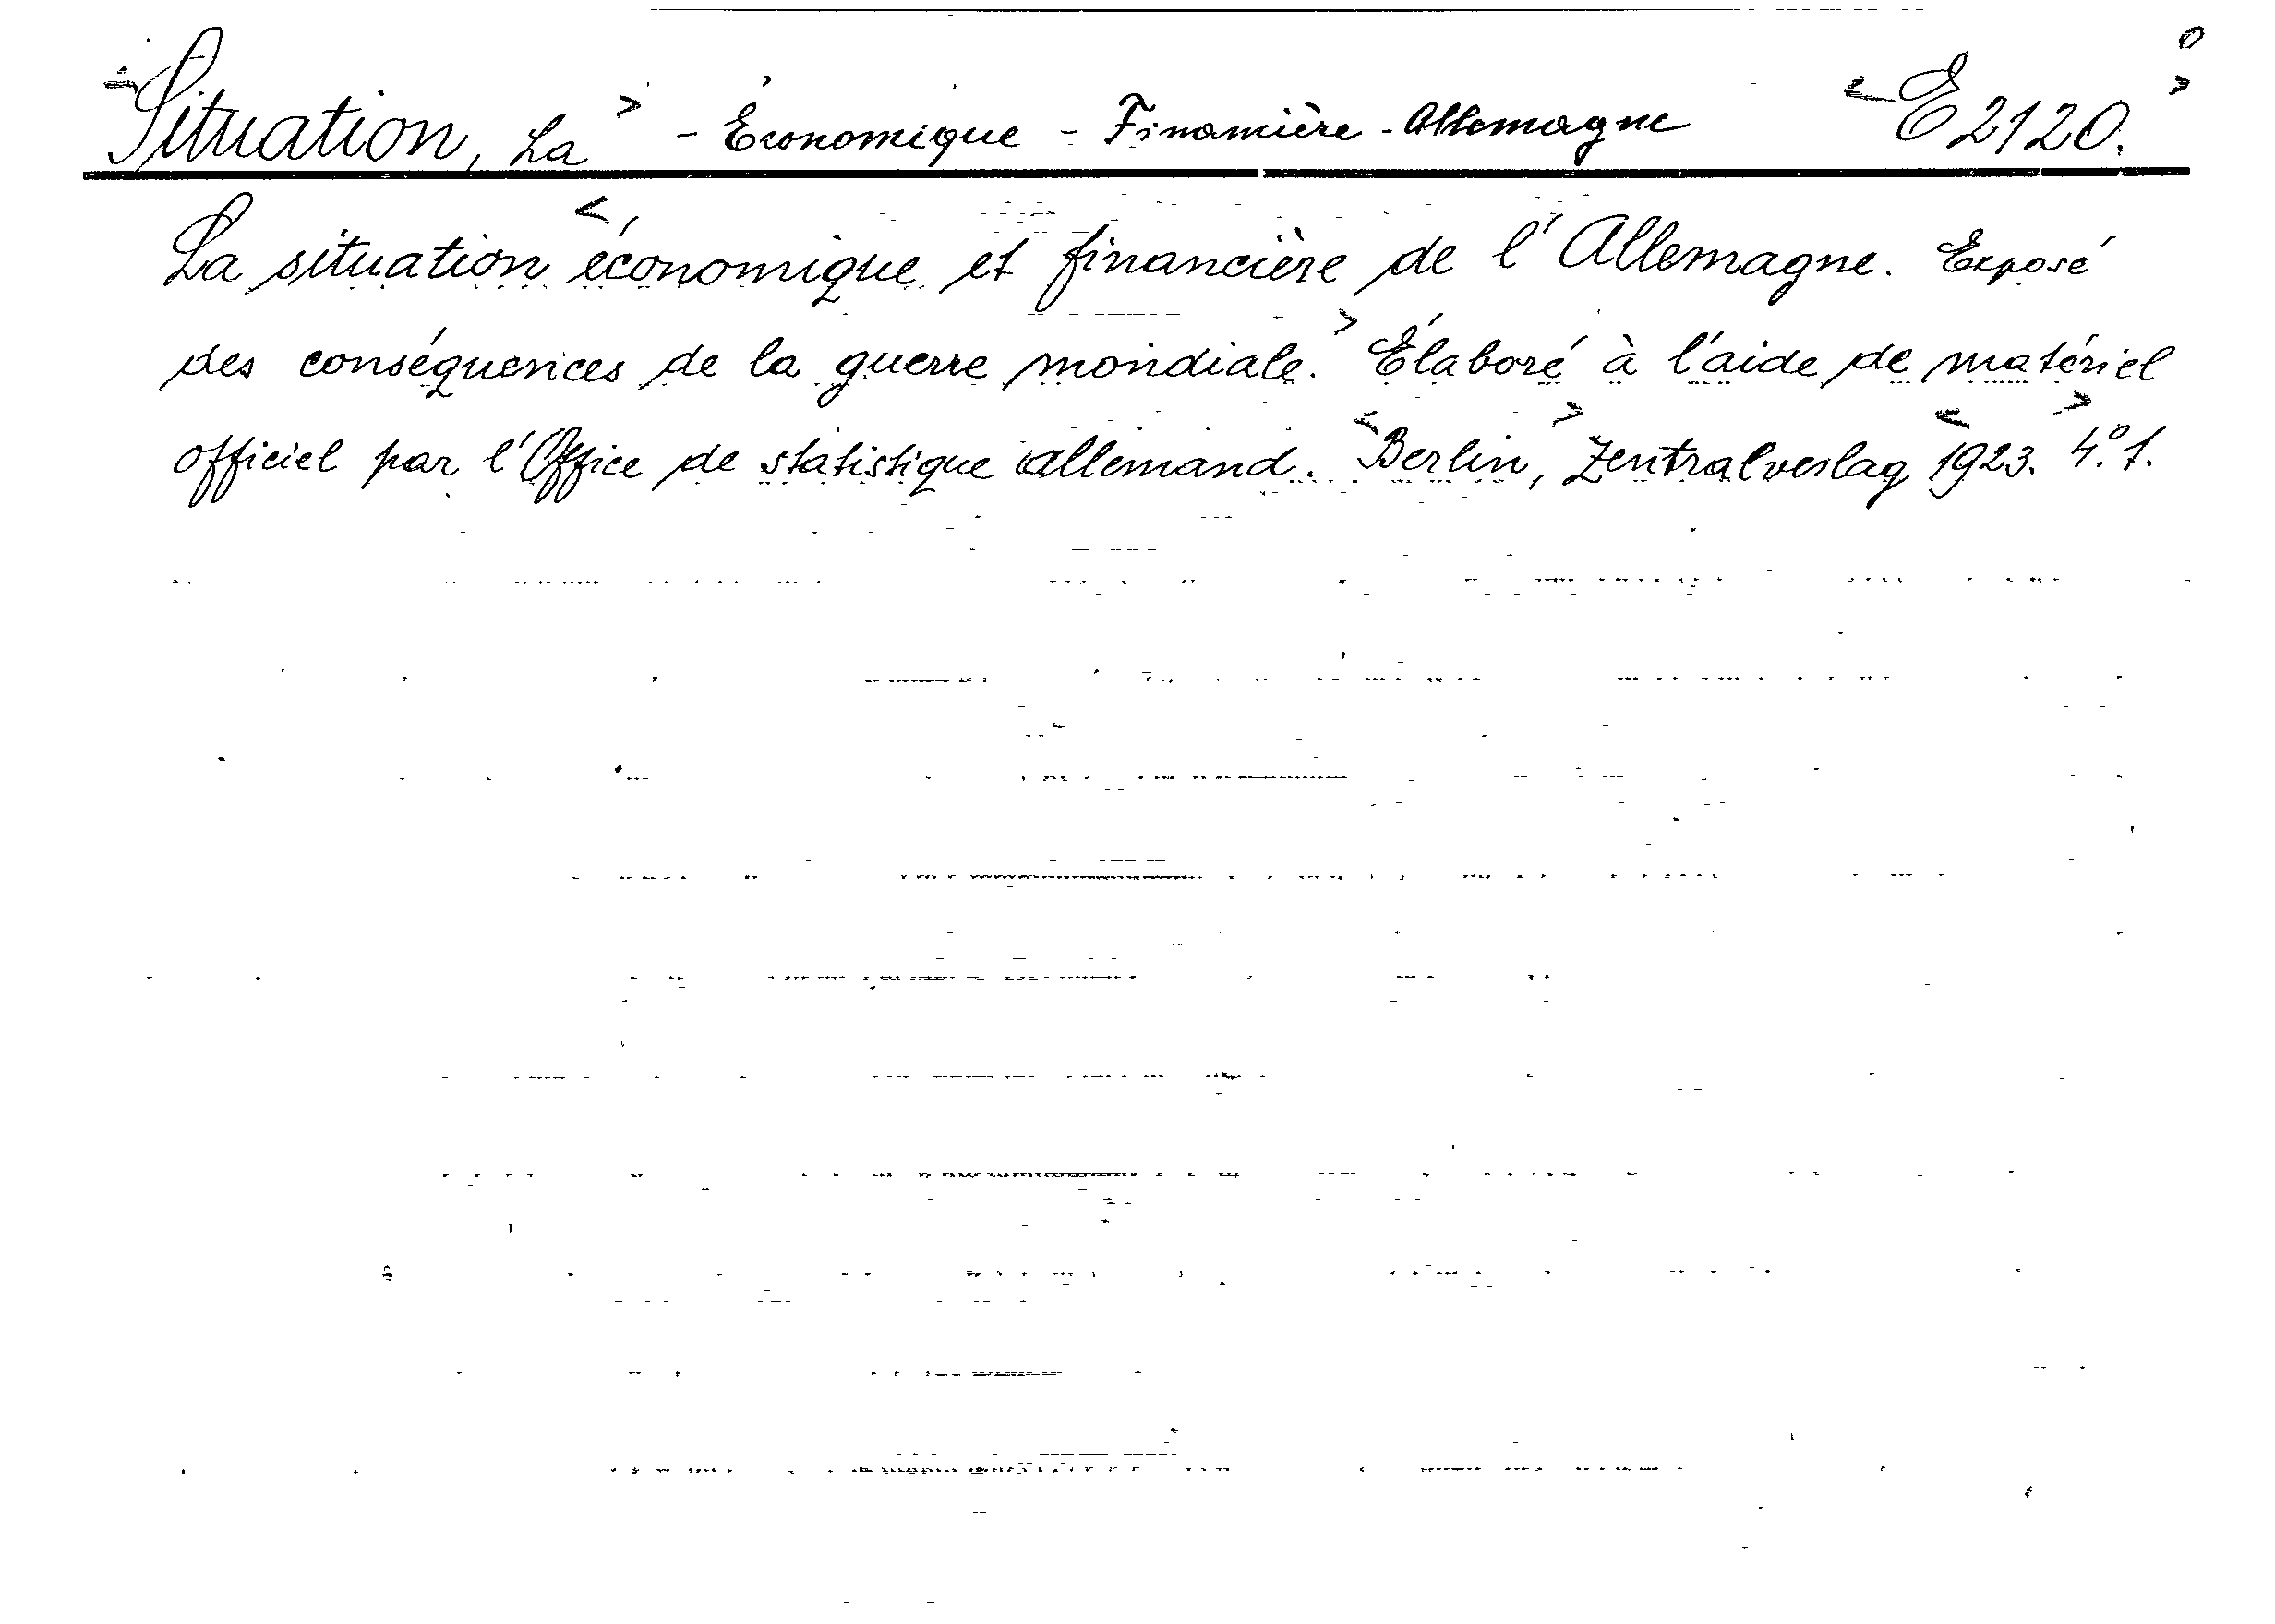 <Situation, La> - Économique - Financière - Allemagne <E2120.>
La situation <économique et financière de l'Allemagne. Exposé
des conséquences de la guerre mondiale.> Élaboré à l'aide de matériel
officiel par l'Office de statistique allemand. <Berlin,> Zentralverlag <1923.> 4° 1.